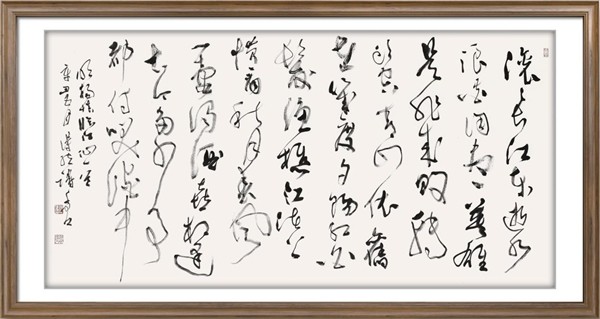 滚滚长江东逝水
浪花淘尽英雄
是非成败转
头空青山依旧
在几度夕阳红白
发渔樵江渚上
惯看秋月春风
一壶浊酒喜相逢
古今多少事
都付笑谈中
明杨慎临江仙一首